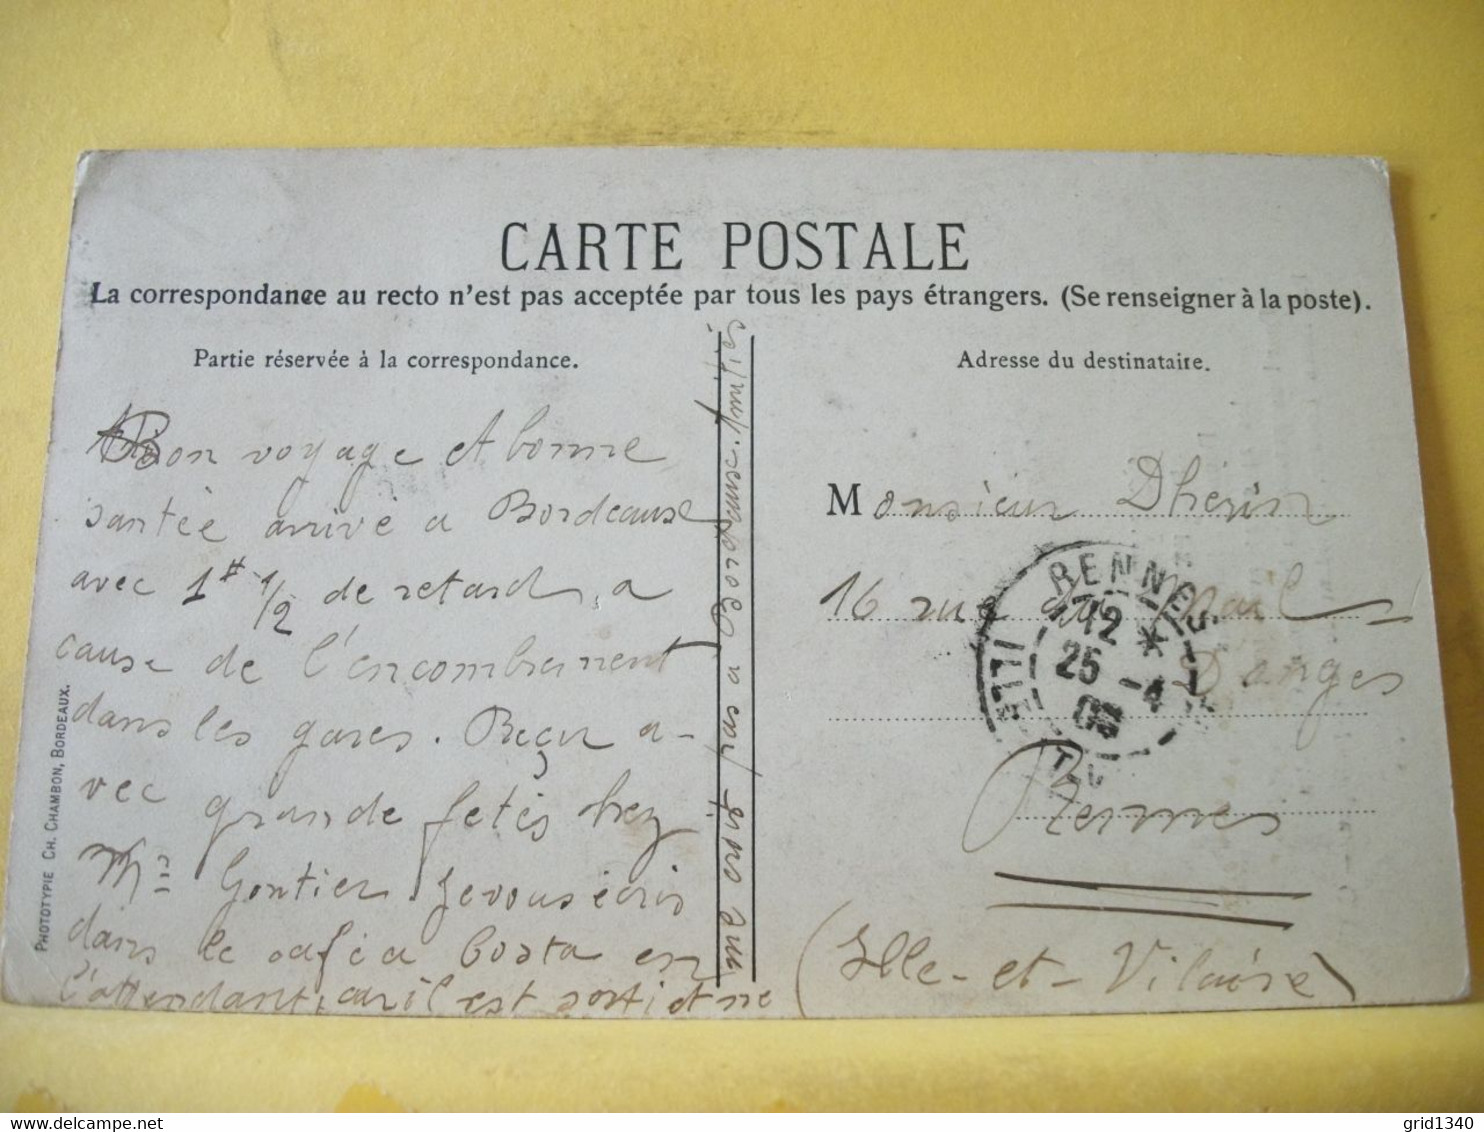 CARTE POSTALE
La correspondance au recto n'est pas acceptée par tous les pays étrangers. (Se renseigner à la poste).
Partie réservée à la correspondance.
Adresse du destinataire.
Bon voyage et bonne
santée arrivé a Bordeause
avec 1# 1/2 de retard, a
cause de l'encombrement
dans les gares. Reçu a-
vec grande fetes chez
Mr Gontier Jevousécris
dans le cafea Costa en
l'attendant, car il est sorti et ne
me suit pas a Bordeaux.
Monsieur Dhérin
16 rue du Mail
Danges
Rennes
(Ille-et-Vilaire)
RENNES
12 *
25 -4
ILLE ET
PHOTOTYPIE CH. CHAMBON, BORDEAUX.
grid1340